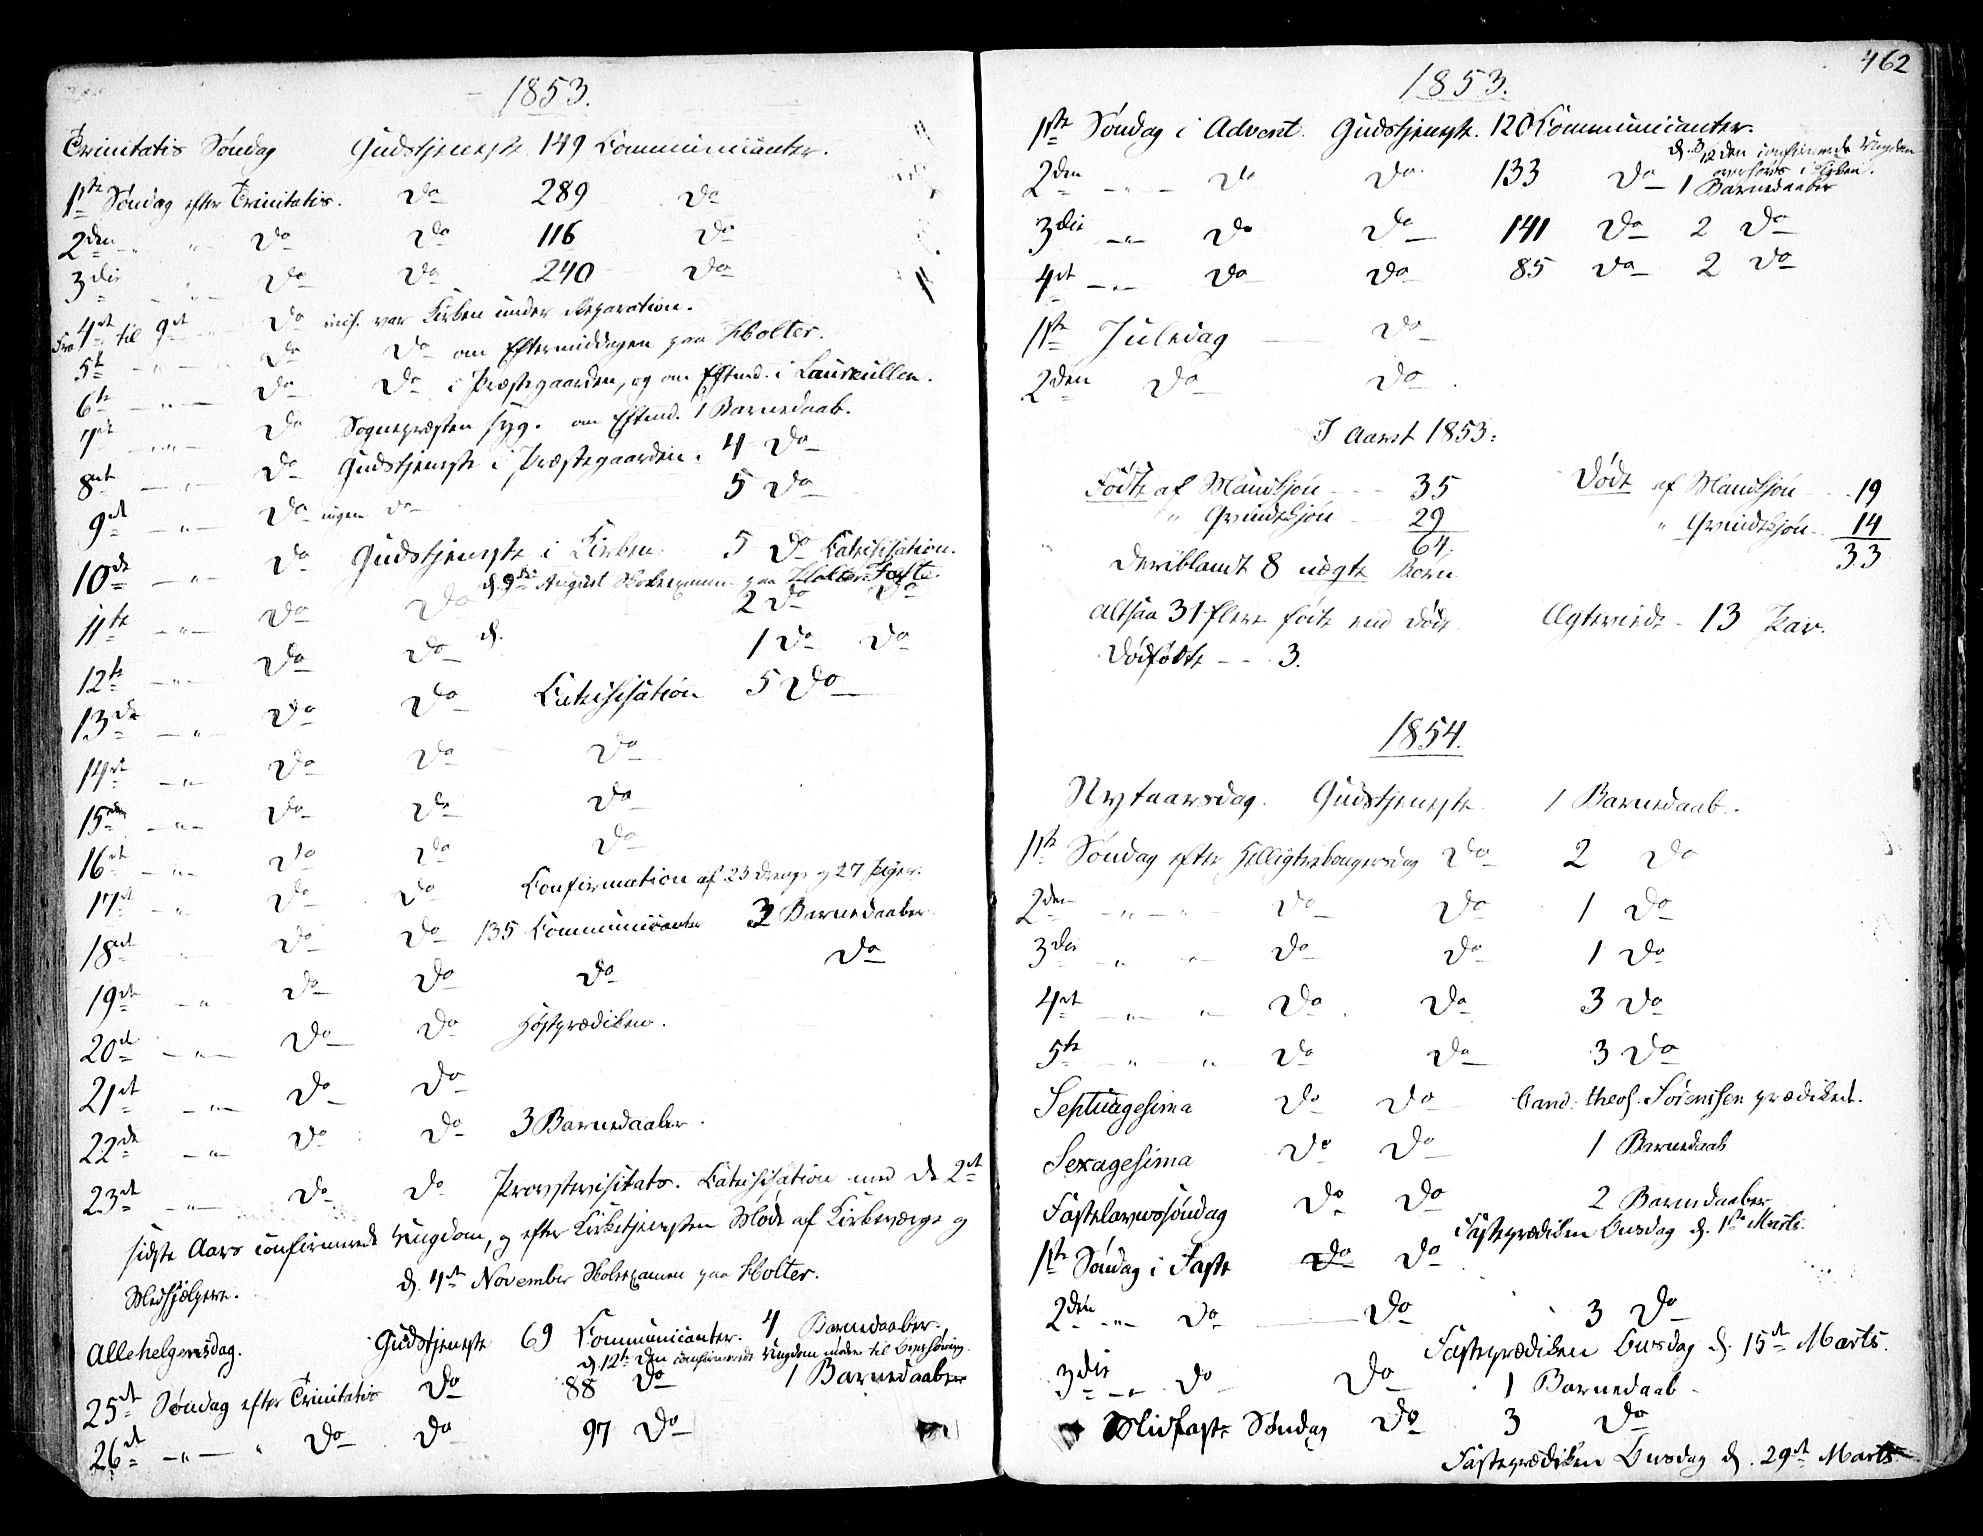 1853.
Trinitatis Søndag Gudstjeneste 149 Communicanter.
1ste Søndag efter Trinitatis. Do 289 Do
2den " " Do Do 116 Do
3die " Do Do 240 Do
Fra 4de til 9de Do incl. var Kirken under Reparation.
5te " Do Do om Eftermiddagen paa Holter.
6te " Do Do i Præstegaarden, og om Efterm. i
7de " Do Sognepræsten syg. om Efterm. 1 Barnedaab.
8de " Do Gudstjeneste i Præstegaarden. 4 Do
9de " Do ingen Do 5 Do
10de " Do Gudstjeneste i Kirken. 5 Do Catechisation.
d. 9de August Skoleexamen paa Holter
11te " Do Do 2 Do Do
12te " Do Do d. 1 Do Do
13de " Do Do Catechisation 5 Do
14de " Do Do Do
15de " Do Do Do
16de " Do Do Do
17de " Do Do Confirmation af 23 Drenge og 27 Piger.
18de " Do Do 135 Communicanter 3 Barnedaaber.
19de " Do Do Do Do
20de " Do Do Høstprædiken.
21de " Do Do
22de " Do Do 3 Barnedaaber.
23de " Do Do Provstevisitats. Catechisation med de 2de
sidste Aars confirmerede Ungdom, og efter Kirketjenesten Møde af Kirkeværge og
Medhjælpere. d. 4de November Skoleexamen paa Holter.
Allehelgensdag. Gudstjeneste 69 Communicanter. 4 Barnedaaber.
d. 12te den confirmerede Ungdom møder til Overhøring.
25de Søndag efter Trinitatis Do 88 Do 1 Barnedaaber
26de " " Do Do 97 Do
462
1853.
1ste Søndag i Advent. Gudstjeneste. 120 Communicanter.
d. 3/12 den confirmerede Ungdom
overhørts i Kirken.
2den " Do Do 133 Do 1 Barnedaaber
3die " Do Do 141 Do 2 Do
4de " Do Do 85 Do 2 Do
1ste Juledag Do
2den Do Do.
I Aaret 1853:
Fødte af Mandkjøn 35 Døde af Mandkjøn 19
" Qvindekjøn 29 " Qvindekjøn 14
64. 33
Deriblandt 8 uægte Børn
Altsaa 31 flere fødte end døde. Ægteviede 13 Par.
Dødfødte 3.
1854.
Nytaarsdag. Gudstjeneste 1 Barnedaab.
1ste Søndag efter Helligtrekongersdag Do 2 Do
2den " " Do Do 1 Do
3die " " Do Do 1 Do
4de " " Do Do 3 Do
5te " " Do Do 3 Do
Septuagesima Do Do Cand. theol. Sørenssen prædikede.
Sexagesima Do Do 1 Barnedaab
Fastelavnssøndag Do Do 2 Barnedaaber
Fasteprædiken Onsdag d. 1ste Marts.
1ste Søndag i Faste Do Do
2den " Do Do 3 Do
Fasteprædiken Onsdag d. 15de Marts.
3die " Do Do 1 Barnedaab
Midfaste Søndag Do 3 Do
Fasteprædiken Onsdag d. 29de Marts